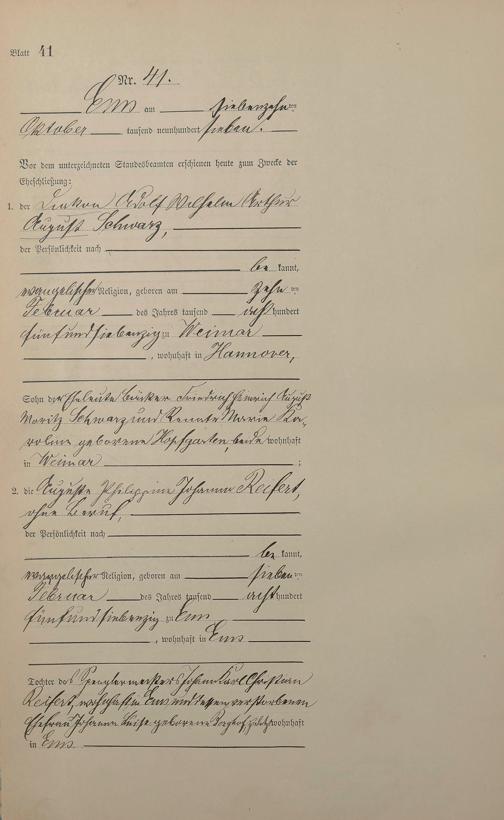 Blatt 41
Nr. 41.
Ems am siebenzehnten
Oktober tausend neunhundert sieben.
Vor dem unterzeichneten Standesbeamten erschienen heute zum Zwecke der
Eheschließung:
1. der Diakon Adolf Wilhelm Arthur
August Schwarz,
der Persönlichkeit nach
bekannt,
evangelischer Religion, geboren am zehnten
Februar des Jahres tausend achthundert
fünfundsiebenzig zu Weimar
, wohnhaft in Hannover,
Sohn der Eheleute Bäcker Friedrich Heinrich August
Moritz Schwarz und Renate Marie Ka-
roline geborene Hopfgarten, beide wohnhaft
in Weimar ;
2. die Auguste Philippine Johanna Reifert,
ohne Beruf,
der Persönlichkeit nach
bekannt,
evangelischer Religion, geboren am sieben
Februar des Jahres tausend achthundert
fünfundsiebenzig zu Ems
, wohnhaft in Ems
Tochter des Spenglermeisters Johann Karl Christian
Reifert, wohnhaft in Ems und dessen verstorbenen
Ehefrau Johanna Luise geborene zuletzt wohnhaft
in Ems